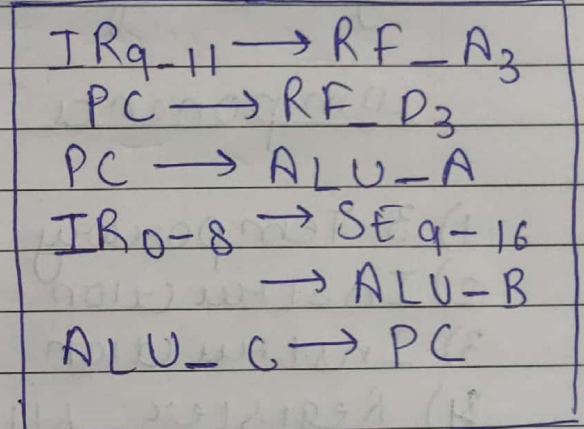 IR9-11 → RF_A3
PC → RF_D3
PC → ALU_A
IR0-8 → SE9-16
→ ALU-B
ALU_C → PC